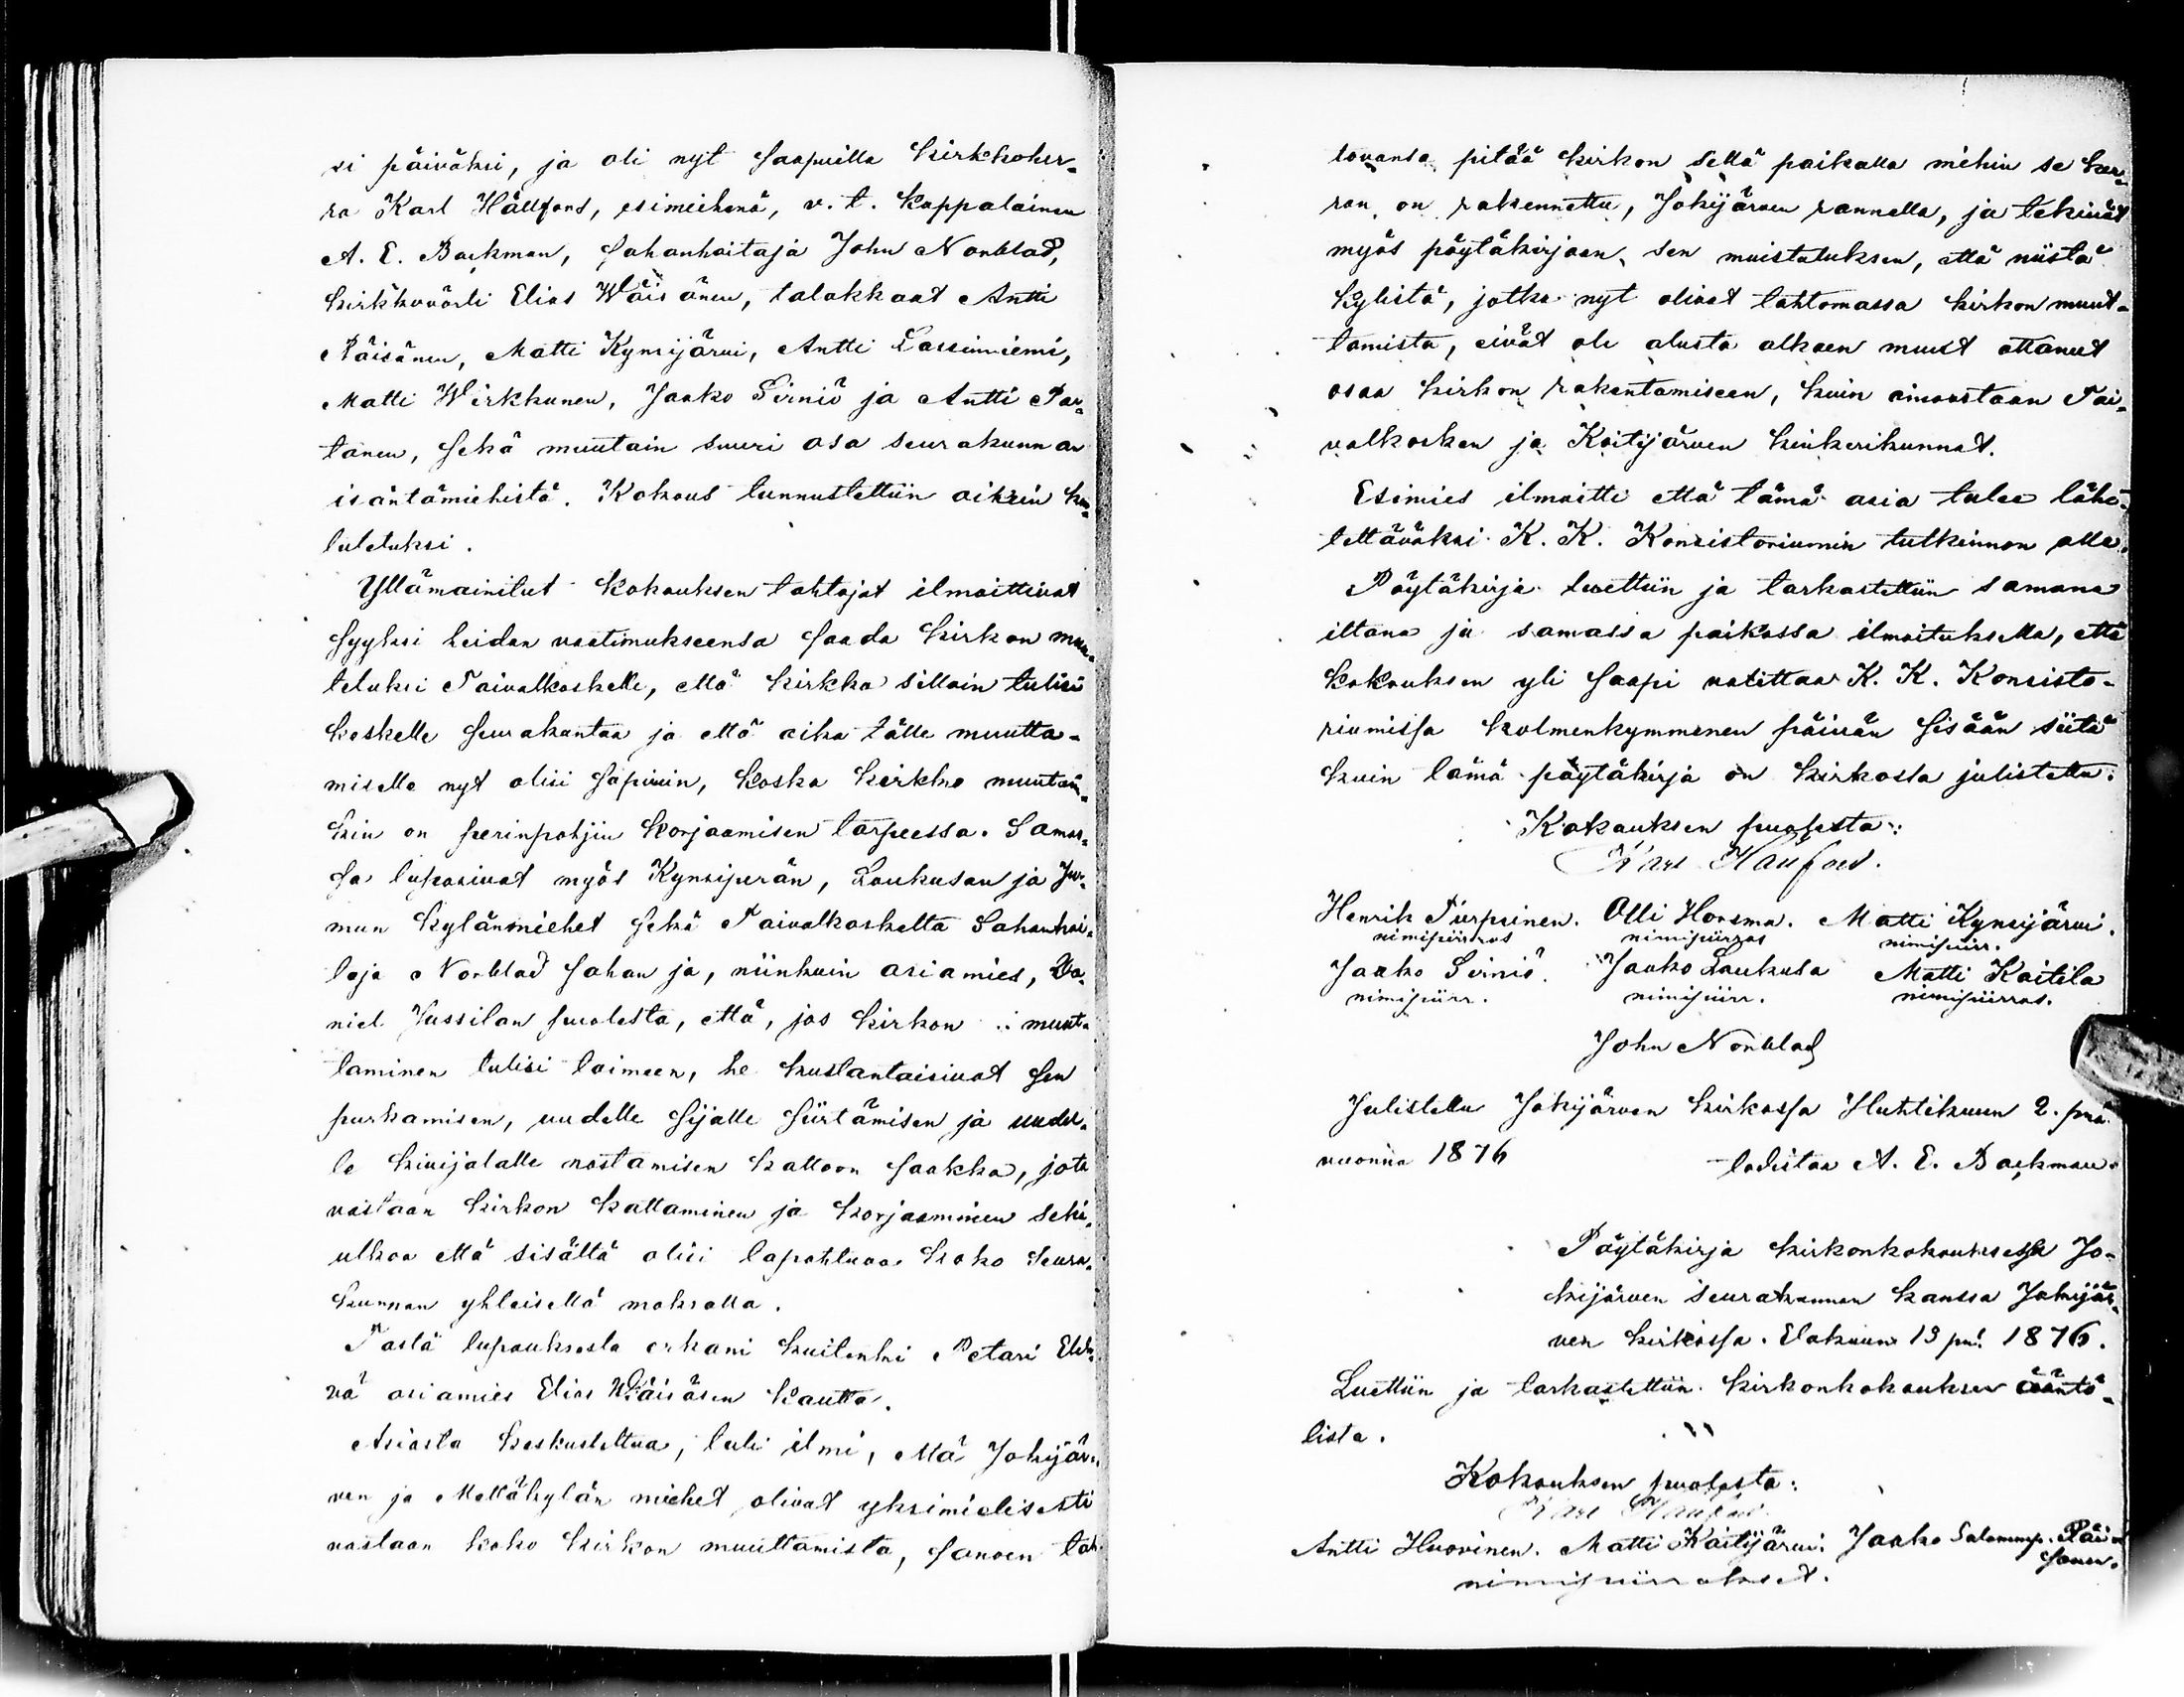 si päiväksi, ja oli nyt saapuilla kirkkoher-
ra Karl Hällfors, esimiehenä, v. t. kappalainen
A. E. Backman, sahanhoitaja John Norrblad,
kirkkovärti Elias Wäisänen, talokkaat Antti
Räisänen, Matti Kynsijärvi, Antti Lassinniemi,
Matti Wirkkunen, Jaako Sirniö ja Antti Par-
tanen, sekä muutain suuri osa seurakunnan
isäntämiehistä. Kokous tunnustettiin oikein ku-
lutetuksi.
Yllämainitut kokouksen tahtojat ilmoittivat
syyksi heidän vaatimukseensa saada kirkon muu-
tetuksi Taivalkoskelle, että kirkko silloin tulisi
keskelle seurakuntaa ja että aika tälle muutta-
miselle nyt olisi sopivin, koska kirkko muutain-
kin on perinpohjin korjaamisen tarpeessa. Samas-
sa lupasivat myös Kynsiperän, Loukusan ja Jur-
mun kylänmiehet sekä Taivalkoskelta Sahanhoi-
taja Norrblad sahan ja, niinkuin asiamies, Da-
niel Jussilan puolesta, että, jos kirkon muut-
taminen tulisi toimeen, he kustantaisivat sen
purkamisen, uudelle sijalle siirtämisen ja uudel-
le kivijalalle nostamisen kattoon saakka, jota
vastaan kirkon kattaminen ja korjaaminen sekä
ulkoa että sisältä olisi tapahtuva koko seura-
kunnan yhteisellä maksolla.
Tästä lupauksesta erkani kuitenki Petari
asiamies Elias Wäisäsen kautta.
Asiasta keskusteltua, tuli ilmi, että Jokijär-
ven ja Mettäkylän miehet olivat yksimielisesti
vastaan koko kirkon muuttamista, sanoen tah-
tovansa pitää kirkon sellä paikalla mihin se ker-
ran on rakennettu, Jokijärven rannalla, ja tekivät
myös pöytäkirjaan sen muistutuksen, että niistä
kylistä, jotka nyt olivat tahtomassa kirkon muut-
tamista, eivät ole alusta alkaen muut ottaneet
osaa kirkon rakentamiseen, kuin ainoastaan Tai-
valkosken ja Koitijärven kinkerikunnat.
Esimies ilmoitti että tämä asia tulee lähe-
tettäväksi K. K. Konsistoriumin tutkinnon alle.
Pöytäkirja luettiin ja tarkastettiin samana
iltana ja samassa paikassa ilmoituksella, että
kokouksen yli saapi valittaa K. K. Konsisto-
riumissa kolmenkymmenen päivän sisään siitä
kuin tämä pöytäkirja on kirkossa julistettu.
Kokouksen puolesta:
Karl Hällfors.
Henrik Turpeinen. Olli Horsma. Matti Kynsijärvi.
nimipiirros nimipiirros nimipiirr.
Jaako Sirniö. Jaako Loukusa Matti Koitila
nimipiirr. nimipiirr. nimipiirros.
John Norrblad
Julistettu Jokijärven kirkossa Huhtikuun 2. pnä
vuonna 1876 todistaa A. E. Backman.
Pöytäkirja kirkonkokouksessa Jo-
kijärven seurakunnan kanssa Jokijär-
ven kirkossa. Elokuun 13 pnä 1876.
Luettiin ja tarkastettiin kirkonkokouksen ääntö-
lista.
Kokouksen puolesta:
Karl Hällfors.
Antti Huovinen. Matti Koitijärvi. Jaako Salomnp. Räi-
sänen.
nimipiirrokset.